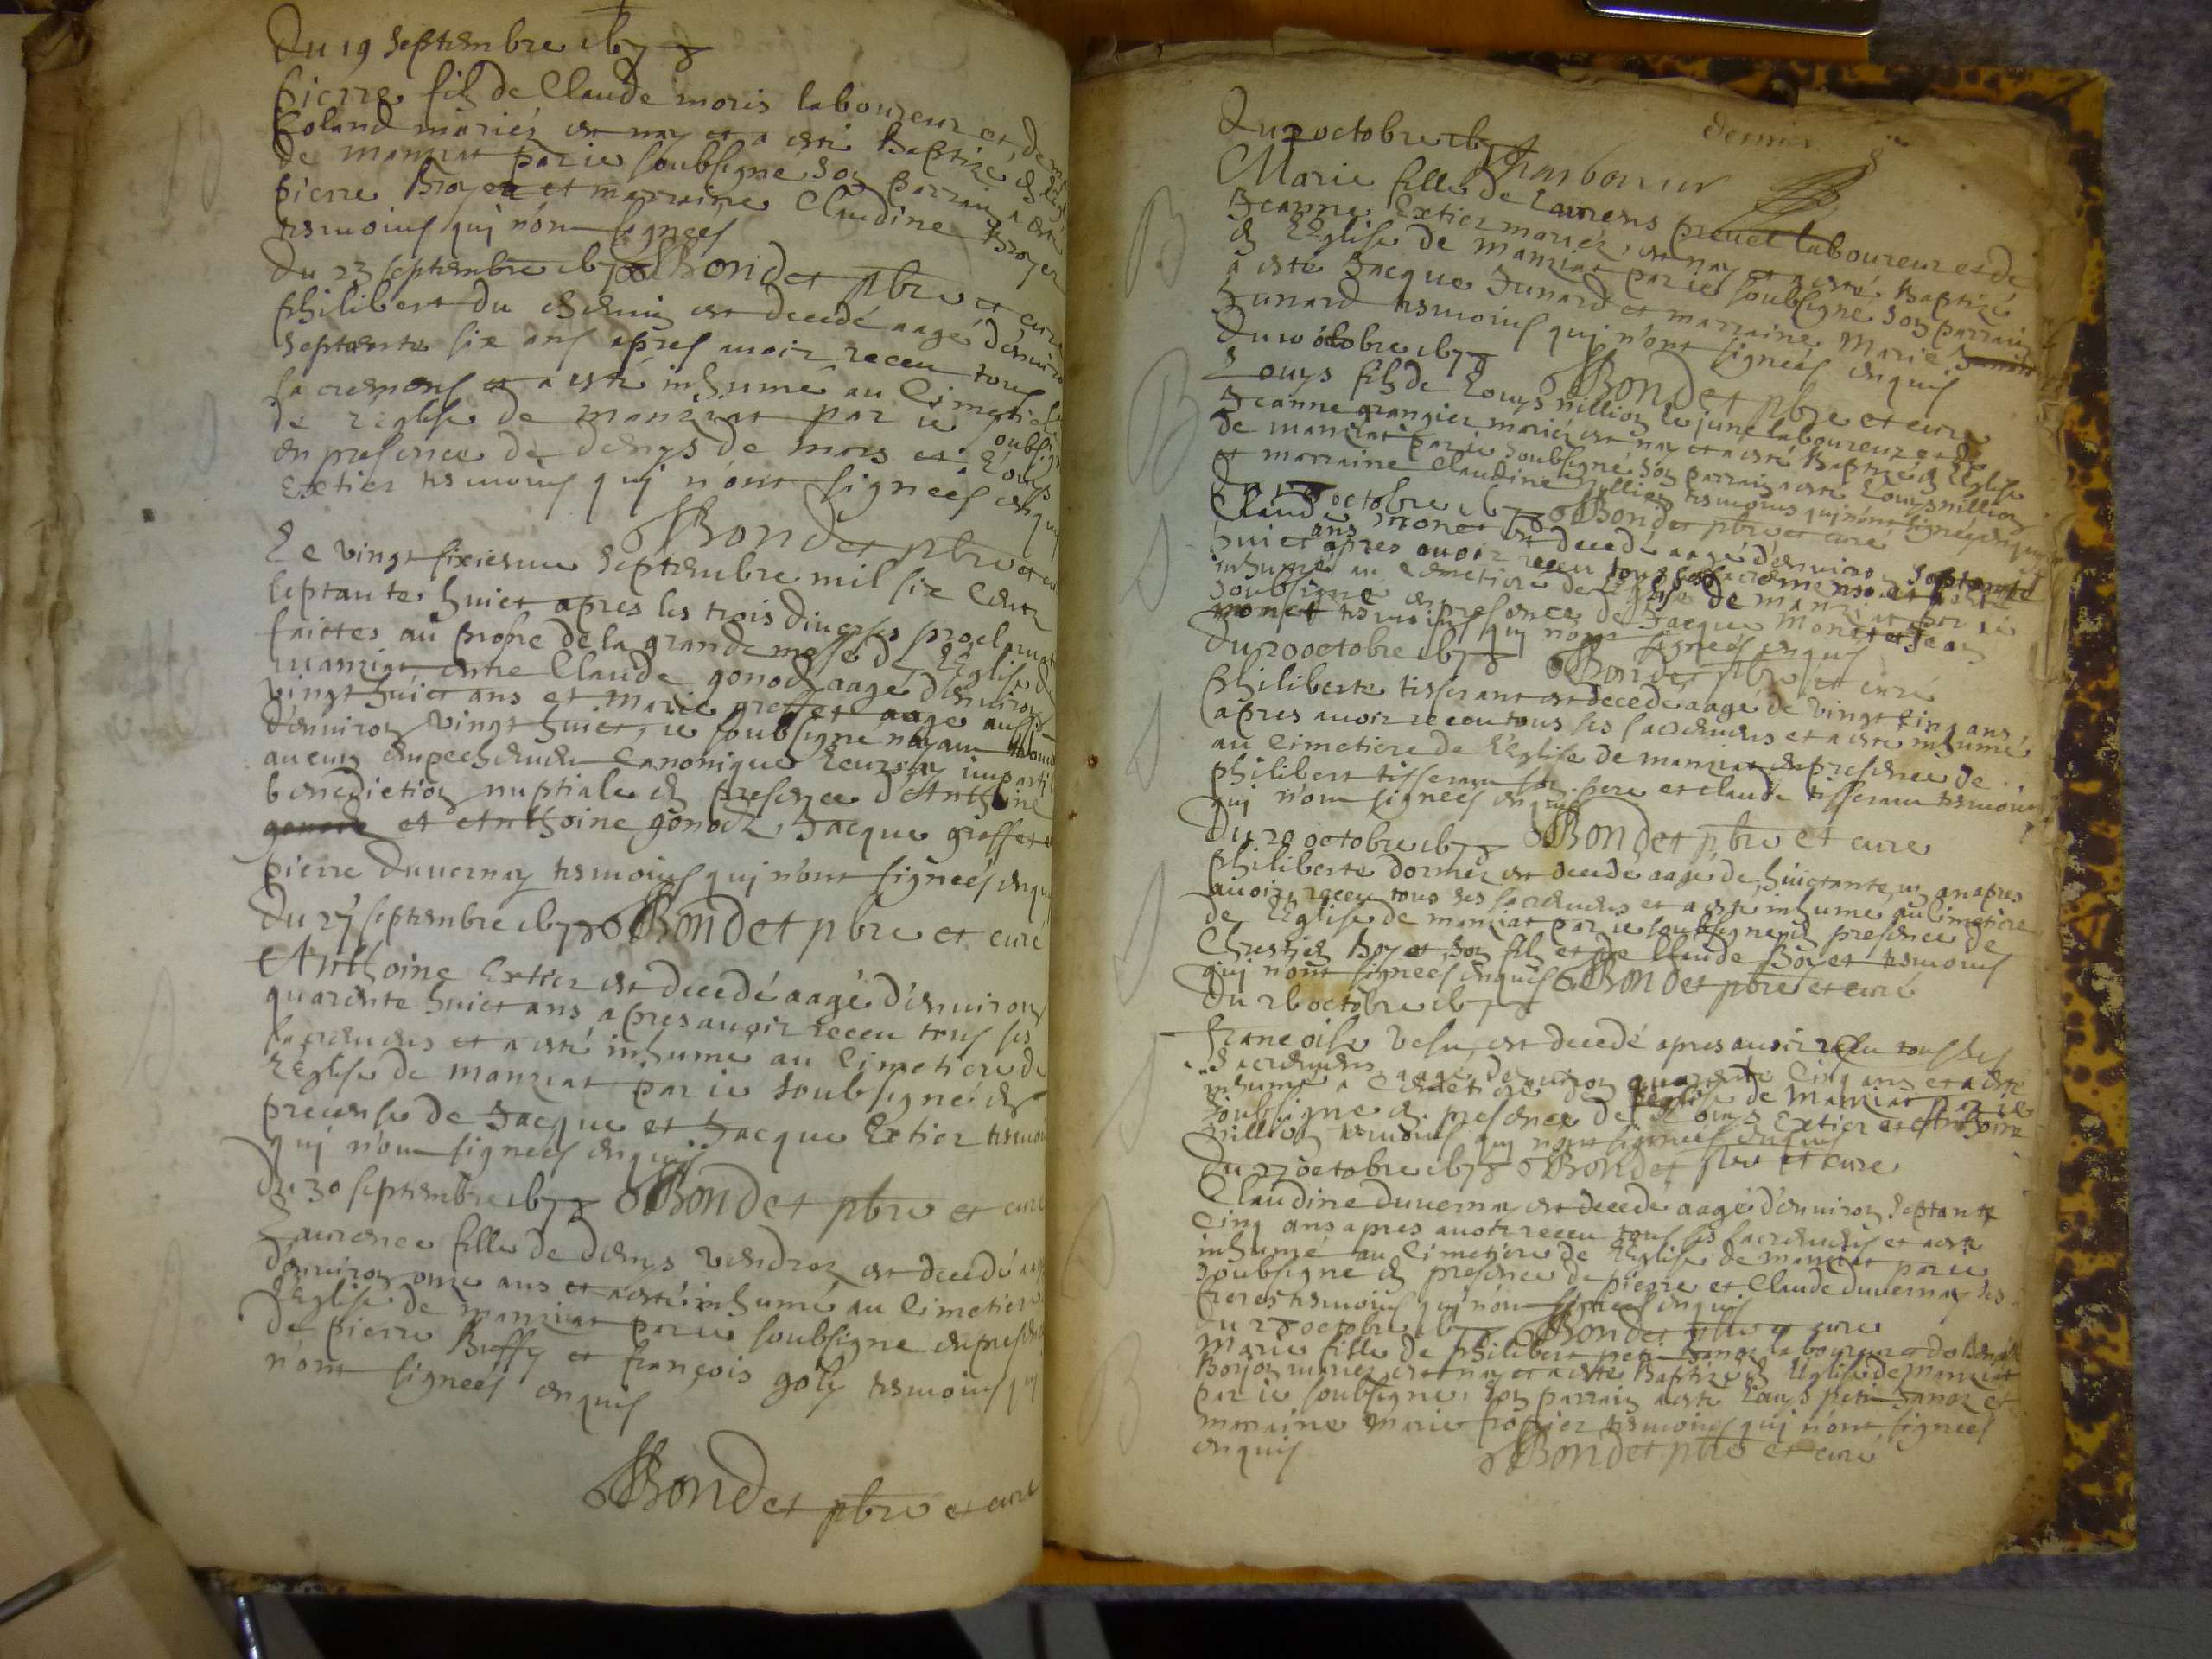 Du 19 septembre 1678
Pierre filz de Claude moris laboureur et de
Poland mariéz est nay et a esté Baptizé en
de manziat par ie soubsigné son parrain a esté
pierre Broyer et marraine Claudine Broyer
tesmoins qui n'ont signees
Du 23 septembre 1678 Bondet pbre et curé
Philibert du est decedé aagé d'enuiron
septante six ans apres auoir receu tous
sacremens et a esté inhumé au Cimetiere
de l'église de manziat par ie soubsigné
en presence de denys de mars et Louys
Extier tesmoins qui n'ont signees enquis
Bondet pbre et
Le vingt sixiesme septembre mil six Cent
septante huict apres les trois diuerses proclamat
faictes au prosne de la grande messe de l'Eglise de
manziat entre Claude gonod aagé d'enuiron
vingt huict ans et Marie greffet aage aussi
d'enuiron vingt huict, ie soubsigné n'ayant
aucun empechement Canonique leurs ay imparti
benediction nuptiale en presence d'Anthoine
et Anthoine gonod, Jacque greffet et
pierre duuernay tesmoins qui n'ont signees enquis
Du 27 septembre 1678 Bondet pbre et curé
Anthoine Extier est decedé aagé d'enuiron
quarente huict ans apres auoir receu tous ses
sacremens et a esté inhumé au Cimetiere de
l'Eglise de manziat par ie soubsigné en
presence de Jacque et Jacque Extier tesmoins
qui n'ont signees enquis
Du 30 septembre 1678 Bondet pbre et curé
Laurence fille de denys vendroz est decedé aagé
d'enuiron onze ans et a esté inhumé au Cimetiere
l'Eglise de manziat par ie soubsigne en presence
de pierre Buffy et françois goly tesmoins qui
n'ont signees enquis
Bondet pbre et cure
dernier
Du 2 octobre 1678
Marie fille de Laurens preuel laboureur et de
Jeanne Extier mariéz, est nay et a esté Baptizé
en l'Eglise de Manziat par ie soubsigné son parrain
a esté Jacque Junard et marraine Marie
Junard tesmoins qui n'ont signees enquis
Du 10 octobre 1678 Bondet pbre et curé
Louys filz de Louys nillion le june laboureur et de
Jeanne grangier mariéz est nay et a esté Baptizé en l'Eglise
de manziat par ie soubsigné son parrain a esté Louys nillion
et marraine Claudine nillion tesmoins qui n'ont signees enquis
Du octobre 1678 Bondet pbre et curé
Claude monet est decedé aagé d'enuiron septante
huict ans apres auoir receu tous ses sacremens et a esté
inhumé au Cemetiere de l'Eglise de manziat par ie
soubsigne en presence de Jacque monet et Jean
monet tesmoins qui n'ont signees enquis
Du 20 octobre 1678 Bondet pbre et curé
Philiberte tisserant est decedé aagé de vingt cinq ans
apres auoir receu tous ses sacremens et a esté inhumé
au Cimetiere de l'Eglise de manziat en presence de
philibert tisserant son pere et Claude tisserant tesmoins
qui n'ont signees enquis
Du 20 octobre 1678 Bondet pbre et cure
Philiberte dormez est decedé aagé de huictante un an apres
auoir receu tous ses sacremens et a esté inhume au Cimetiere
de l'Eglise de manziat par ie soubsigne en presence de
Chrestien Boyet son filz et de Claude Boyet tesmoins
qui n'ont signees enquis Bondet pbre et curé
Du 26 octobre 1678
francoise vesu, est decedé apres auoir receu tous ses
sacremens aagé d'enuiron quarente Cinq ans et a esté
inhumé a Cemetiere de l'eglise de Manziat par ie
soubsigne en presence de Louys Extier et Anthoine
nillion tesmoins qui n'ont signees enquis
Du 27 octobre 1678 Bondet pbre et cure
Claudine duuernay est decedé aagé d'enuiron septante
Cinq ans apres auoir receu tous ses sacremens et a esté
inhumé au Cimetiere de l'Eglise de manziat par ie
soubsigne en presence de pierre et Claude duuernay ses
freres tesmoins qui n'ont signees enquis
du 28 octobre 1678 Bondet pbre et cure
Marie fille de philibert petit Janoz laboureur et de
Borjon mariez est nay et a esté Baptizé en l'Eglise de Manziat
par ie soubsigne, son parrain a esté Louys petit Janoz et
maraine Marie tesmoins qui n'ont signees
enquis
Bondet pbre et curé